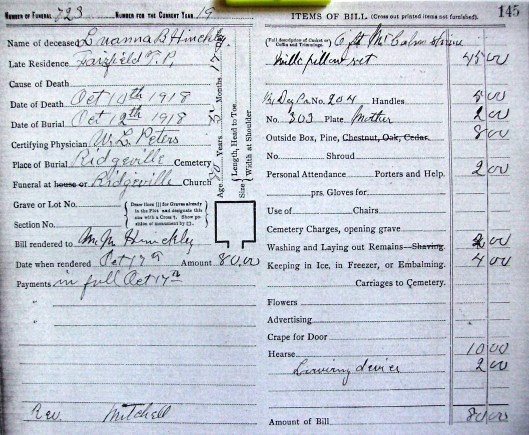 NUMBER OF FUNERAL 323 NUMBER FOR THE CURRENT YEAR 19
Name of deceased Luanna B Hinckley
Late Residence Fairfield T.P.
Cause of Death
Date of Death Oct 10th 1918
Date of Burial Oct 12th 1918
Certifying Physician W. L. Peters
Place of Burial Ridgeville Cemetery
Funeral at house or Ridgeville Church
Grave or Lot No.
Section No.
Draw lines ||| for Graves already in the Plot and designate this size with a Cross †. Show position of monument by □.
Age Years Months Days
Size { Length, Head to Toe
Width at Shoulder
Bill rendered to Hinckley
Date when rendered Oct 17th Amount 80.00
Payments in full Oct 17th
"
"
Rev. Mitchell
ITEMS OF BILL (Cross out printed items not furnished). 145
(Full description of Casket or Coffin and Trimmings.)
pillow set 45 00
No. 204 Handles 5 00
No. 303 Plate Mother 2 00
Outside Box, Pine, Chestnut, Oak, Cedar. 8 00
No. Shroud
Personal Attendance Porters and Help. 2 00
prs. Gloves for
Use of Chairs
Cemetery Charges, opening grave
Washing and Laying out Remains—Shaving. 2 00
Keeping in Ice, in Freezer, or Embalming. 4 00
Carriages to Cemetery.
Flowers
Advertising
Crape for Door
Hearse 10 00
Lowering device 2 00
Amount of Bill 80 00